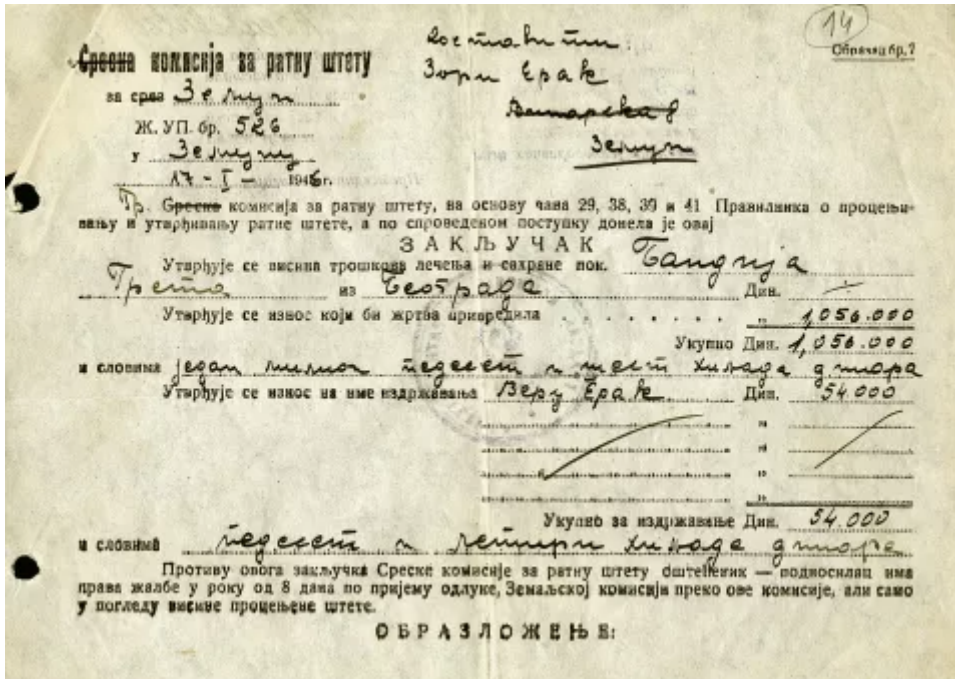 14
Образац бр. 7
Доставити:
Зори Ерак
Земун
Среска комисија за ратну штету
за срез Земун
Ж. УП. бр. 526
у Земуну
17-I-1946 г.
Гр. Среска комисија за ратну штету, на основу чана 29, 38, 39 и 41 Правилника о процењи-
вању и утврђивању ратне штете, а по спроведеном поступку донела је овај
ЗАКЉУЧАК
Утврђује се висина трошкова лечења и сахране пок. Бандија
Грета из Београда Дин.
Утврђује се износ који би жртва привредила " 1,056.000
Укупно Дин. 1,056.000
и словима један милион педесет и шест хиљада динара
Утврђује се износ на име издржавања Веру Ерак Дин. 54.000
"
"
"
"
Укупно за издржавање Дин. 54.000
и словима педесет и четири хиљада динара
Противу овога закључка Среске комисије за ратну штету оштећеник — подносилац има
права жалбе у року од 8 дана по пријему одлуке, Земаљској комисији преко ове комисије, али само
у погледу висине процењене штете.
ОБРАЗЛОЖЕЊЕ: